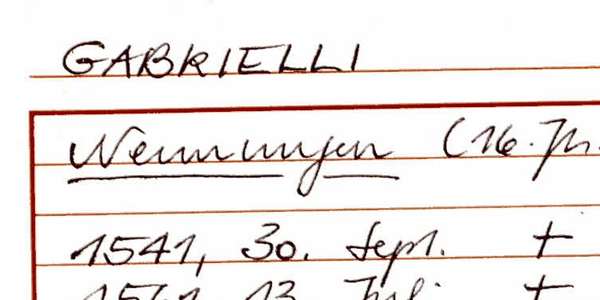 GABRIELLI
Nennungen (16. Jh.
1541, 30. Sept. +
13. Juli +